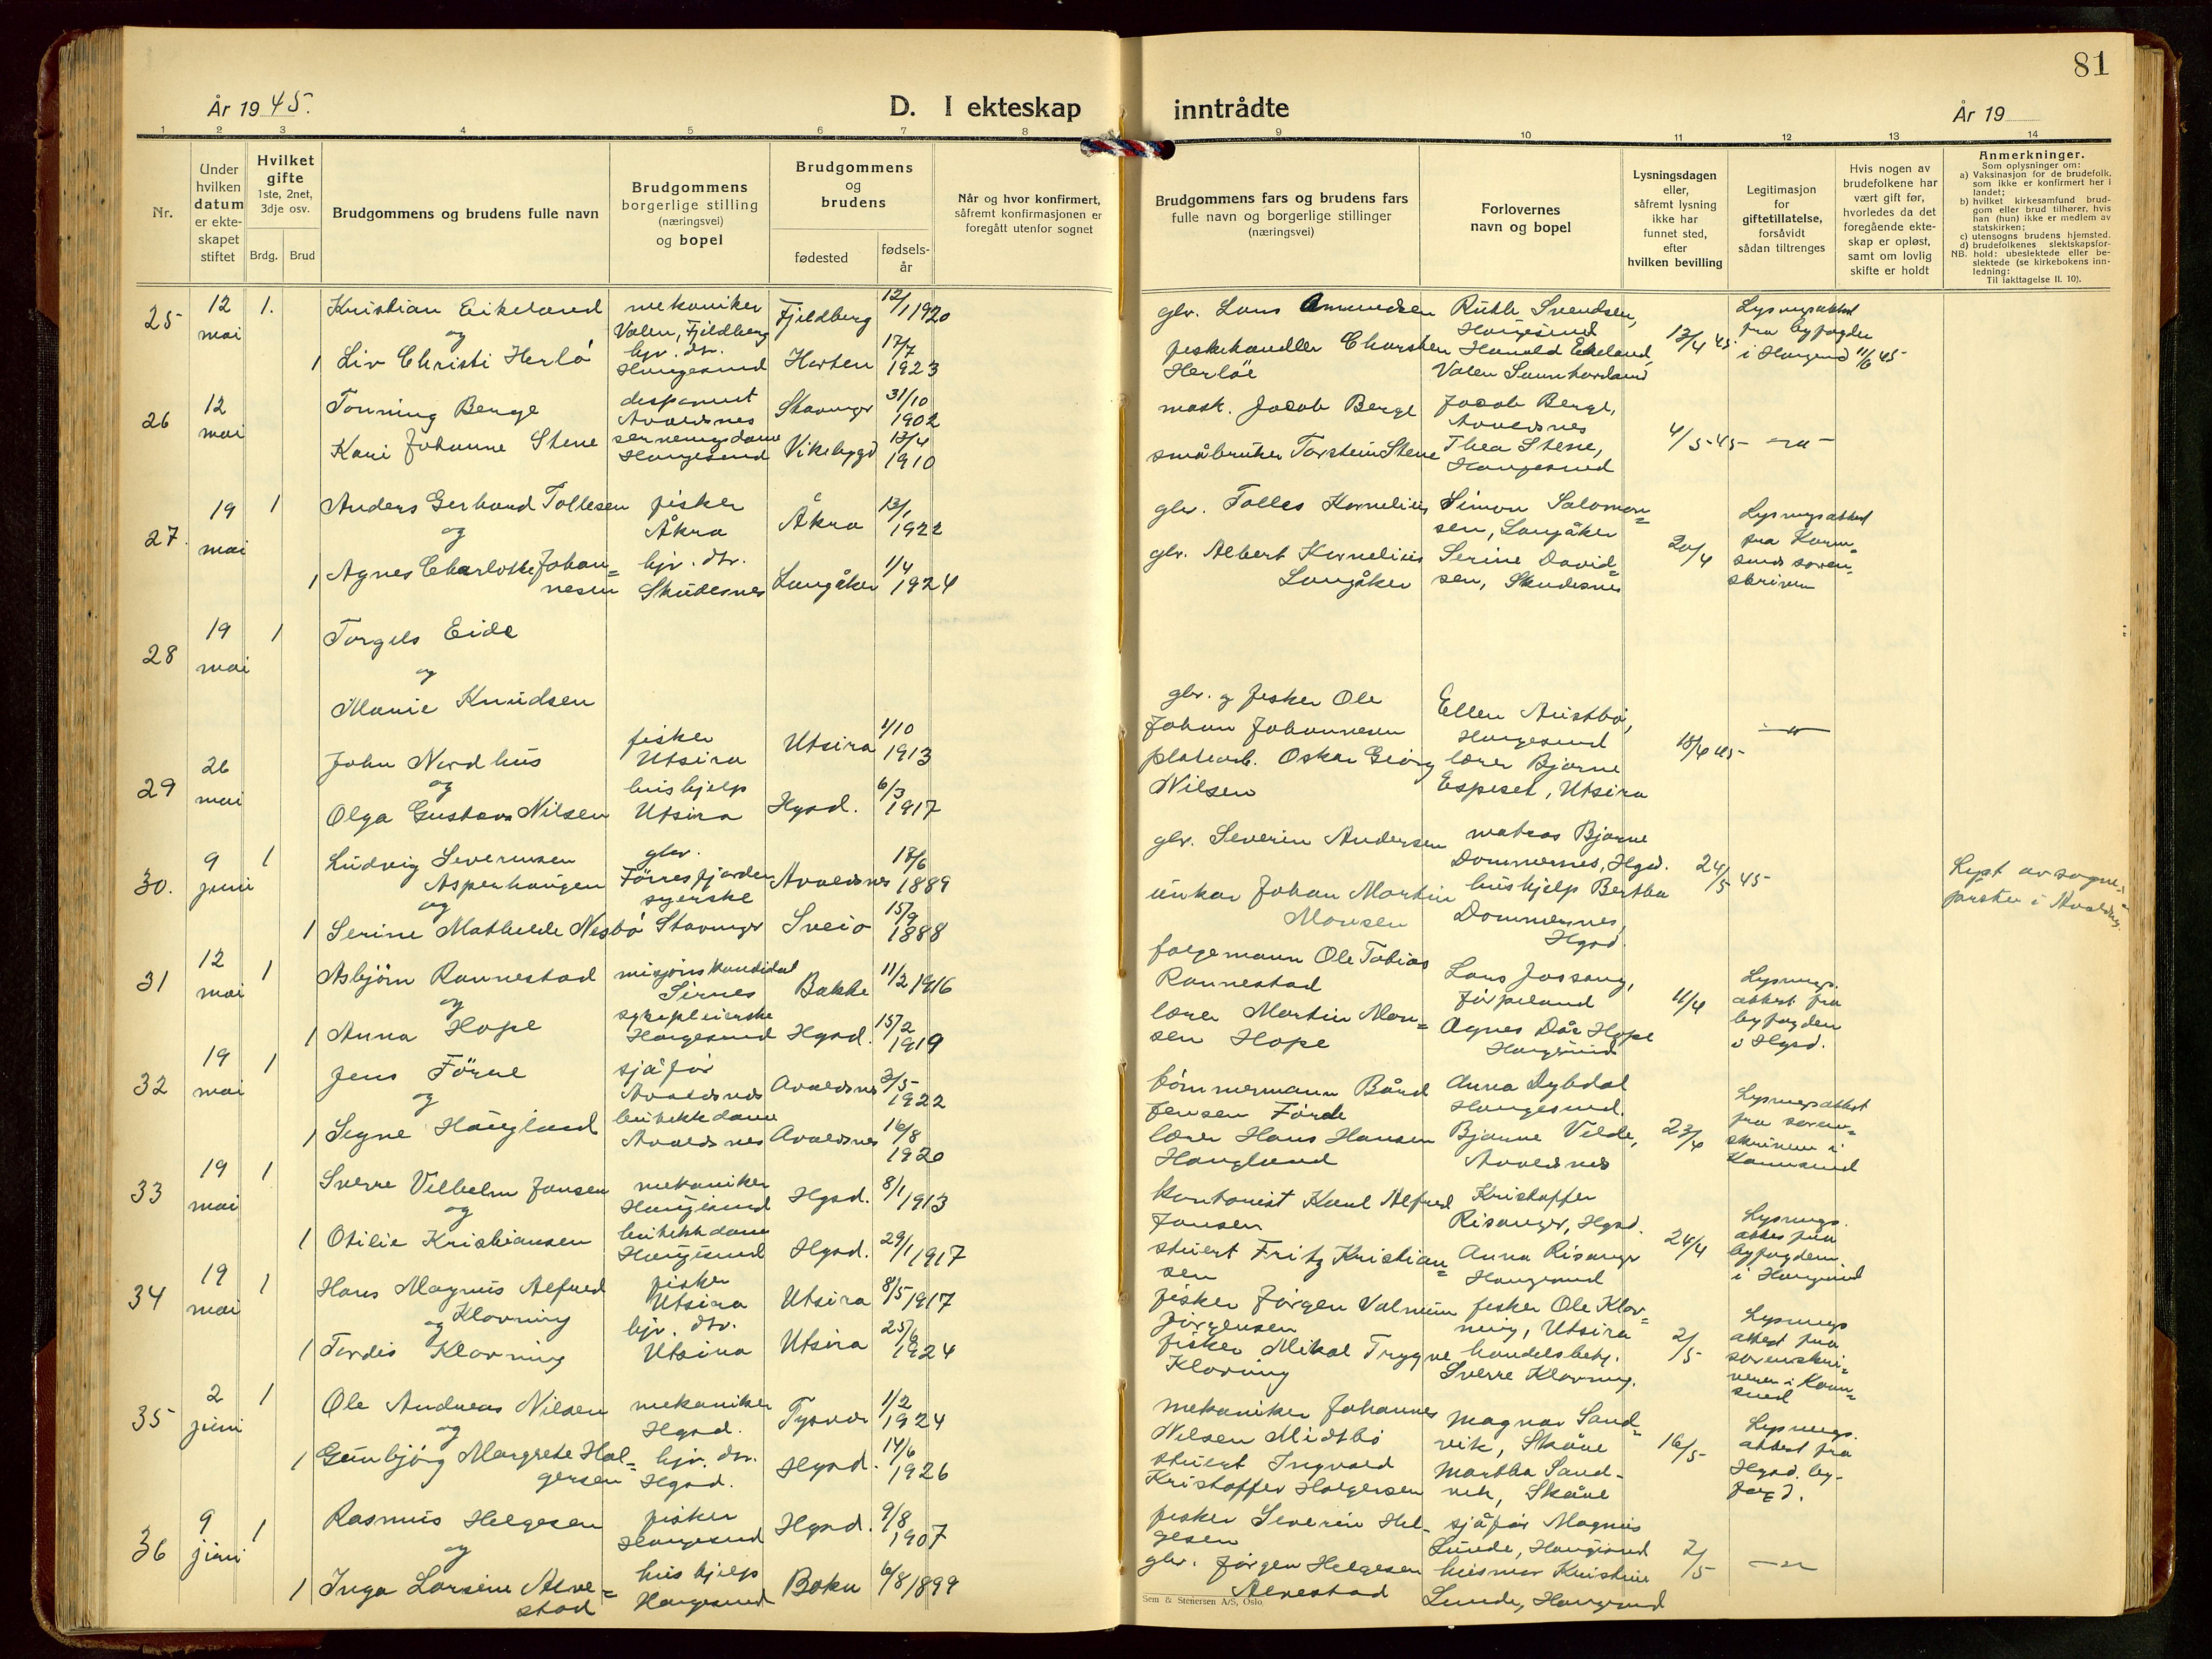 81
År 1945.
D. I ekteskap inntrådte
År 19
1 2 3 4 5 6 7 8 9 10 11 12 13 14
Nr.
Under hvilken datum er ekteskapet stiftet
Hvilket gifte 1ste, 2net, 3dje osv.
Brdg. Brud
Brudgommens og brudens fulle navn
Brudgommens borgerlige stilling (næringsvei) og bopel
Brudgommens og brudens
fødested
fødselsår
Når og hvor konfirmert, såfremt konfirmasjonen er foregått utenfor sognet
Brudgommens fars og brudens fars fulle navn og borgerlige stillinger (næringsvei)
Forlovernes navn og bopel
Lysningsdagen eller, såfremt lysning ikke har funnet sted, efter hvilken bevilling
Legitimasjon for giftetillatelse, forsåvidt sådan tiltrenges
Hvis nogen av brudefolkene har vært gift før, hvorledes da det foregående ekteskap er opløst, samt om lovlig skifte er holdt
Anmerkninger.
Som oplysninger om:
a) Vaksinasjon for de brudefolk, som ikke er konfirmert her i landet;
b) hvilket kirkesamfund brudgom eller brud tilhører, hvis han (hun) ikke er medlem av statskirken;
c) utensogns brudens hjemsted.
d) brudefolkenes slektskapsforhold: ubeslektede eller beslektede (se kirkebokens innledning:
NB. Til iakttagelse II. 10).
25 12 mai 1. Kristian Eikeland mekaniker Valen, Fjeldberg Fjeldberg 12/1 1920
og
1 Liv Christi Herlö hjv. dtr. Haugesund Horten 17/7 1923
gbr. Lars Amundsen
fiskehandler Charsten Herlöe
Ruth Svendsen, Haugesund
Harald Eikeland, Valen Sunnhordland
13/4 45
Lysningsattest fra byfogden i Haugesund 11/6 45
26 12 mai Tonning Berge Avaldsnes Stavanger 31/10 1902
Kari Johanne Stene serveringsdame Haugesund Vikebygd 13/4 1910
mask. Jacob Berge
småbruker Torstein Stene
Jacob Berge, Avaldsnes
Thea Stene, Haugesund
4/5-45 -"-
27. 19 mai 1 Anders Gerhard Tollesen fisker Åkra Åkra 13/1 1922
og
1 Agnes Charlotte Johannesen hjv. dtr. Skudesnes Langåker 1/4 1924
gbr. Tolles Kornelius
gbr. Albert Kornelius Langåker
Simon Salomonsen, Langåker
Serine Davidsen, Skudesnes
20/4
Lysningsattest fra Karmsund sorenskriveri
28 19 mai 1 Torgils Eide
og
Marie Knudsen
29 26 mai John Nordhus fisker Utsira Utsira 4/10 1913
og
Olga Gustava Nilsen hushjelp Utsira Hgsd. 6/3 1917
gbr. og fisker Ole Johan Johannesen
platearb. Oskar Georg Nilsen
Ellen Austbö, Haugesund
lærer Bjarne Espeset, Utsira
18/4 45- -"-
30. 9 juni 1 Ludvig Severinsen Asperhaugen gbr. Förresfjorden Avaldsnes 18/6 1889
og
1 Serine Mathilde Nesbö syerske Stavanger Sveio 15/9 1888
gbr. Severin Andersen
unkar Johan Martin Monsen
matros Bjarne Dommersnes, Hgsd.
hushjelp Bertha Dommersnes, Hgsd.
24/5 45-
Lyst av sogneprsten i Avaldsnes
31 12 mai 1 Asbjörn Rannestad misjonskandidat Sirnes Bakke 11/2 1916
og
1 Anna Hope sykepleierske Haugesund Hgsd. 15/2 1919
fargemann Ole Tobias Rannestad
lærer Martin Monsen Hope
Lars Jossang, Jörpeland
Agnes Dår Hope Haugesund
11/4
Lysnings. attest fra byfogden i Hgsd.
32 19 mai 1 Jens Förre sjåför Avaldsnes Avaldsnes 3/5- 1922
og
1 Signe Haugland butikkdame Avaldsnes Avaldsnes 16/8 1920
tömmermann Bård Jensen Förde
lærer Hans Hansen Haugland
Anna Dybdal Haugesund.
Bjarne Velde, Avaldsnes
23/4
Lysningsattest fra sorenskriveren i Karmsund
33 19 mai 1 Sverre Vilhelm Jansen mekaniker Haugesund Hgsd. 8/1 1913
og
1 Otilie Kristiansen butikkdame Haugesund Hgsd. 29/1 1917
kontorist Karl Alfred Jansen
stuert Fritz Kristiansen
Kristoffer Risanger, Hgsd.
Anna Risanger Haugesund
24/4
Lysnings. attes fra byfogden i Haugesund
34 19 mai 1 Hans Magnus Alfred Klovning fisker Utsira Utsira 8/5 1917
og
1 Tordis Klovning hjv. dtr. Utsira Utsira 25/6 1924
fisker Jörgen Valmuin Jörgensen
fisker Mikal Trygve Klovning
fisker Ole Klovning, Utsira
handelsbetj. Sverre Klovning.
2/5
Lysnings attest fra sorenskriveren i Karmsund
35 2 juni 1 Ole Andreas Nilsen mekaniker Hgsd. Tysvær 1/2 1924
og
1 Gunbjörg Margrete Holgersen hjv. dtr. Hgsd. Hgsd. 14/6 1926
mekaniker Johannes Nilsen Midtbö
stuert Ingvald Kristoffer Holgersen
Magnar Sandvik, Skåre
Martha Sandvik, Skåre
16/5-
Lysnings. attest fra Hgsd. byfogd.
36 9 juni 1 Rasmus Helgesen fisker Haugesund Hgsd. 9/8 1907
og
1 Inga Lorsine Alvestad hushjelp Haugesund Bokn 6/8 1899
fisker Severin Helgesen
gbr. Jörgen Helgesen Alvestad
sjåför Magnus Lunde, Haugesund
husmor Kristine Lunde, Haugesund
2/5 -"-
Sem & Stenersen A/S, Oslo.